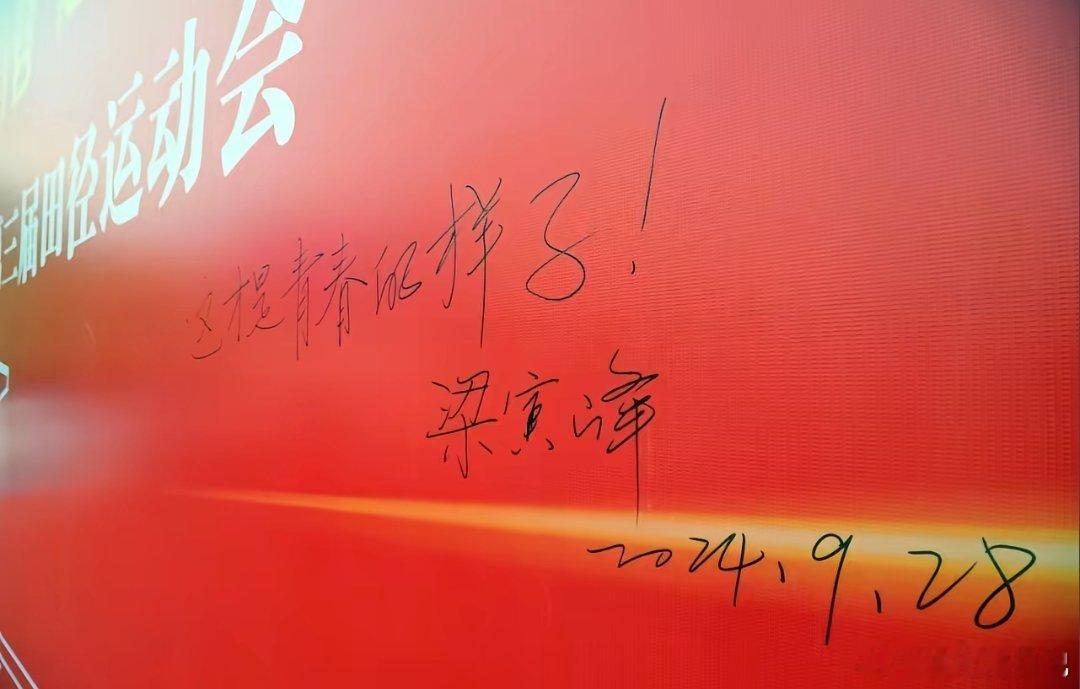 三届田径运动会
这提青春的样子！
梁寅峰
2024.9.28